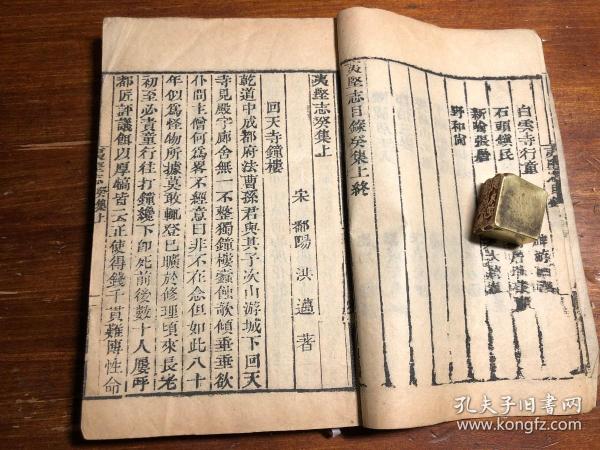 白雲寺行童
石頭鎮民
新喻張屠
野和尚
夷堅志目錄癸集上終
夷堅志癸集上
宋 鄱陽 洪邁 著
回天寺鐘樓
乾道中成都府法曹孫君與其子次山游城下回天
寺見殿宇廊舍無一不整獨鐘樓蠹蝕欹傾垂垂欲
仆問主僧何為畧不經意曰非不在念但如此八十
年似為怪物所據莫敢輒登已曠於修理頃來長老
初至必責童行往打鐘纔下卽死前後數十人屢呼
都匠評議餌以厚犒皆云正使得錢千貫難博性命
夷堅志癸集上
孔夫子旧书网
www.kongfz.com